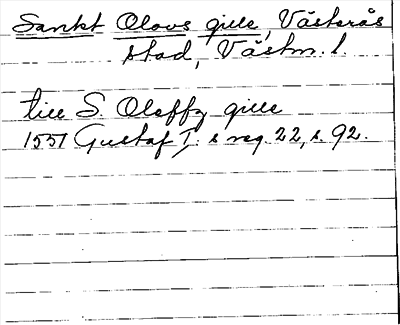 Sankt Olovs gille, Västerås
stad, Västm. l.
till S. Oleffz gille
1551 Gustaf I:s reg. 22, s. 92.